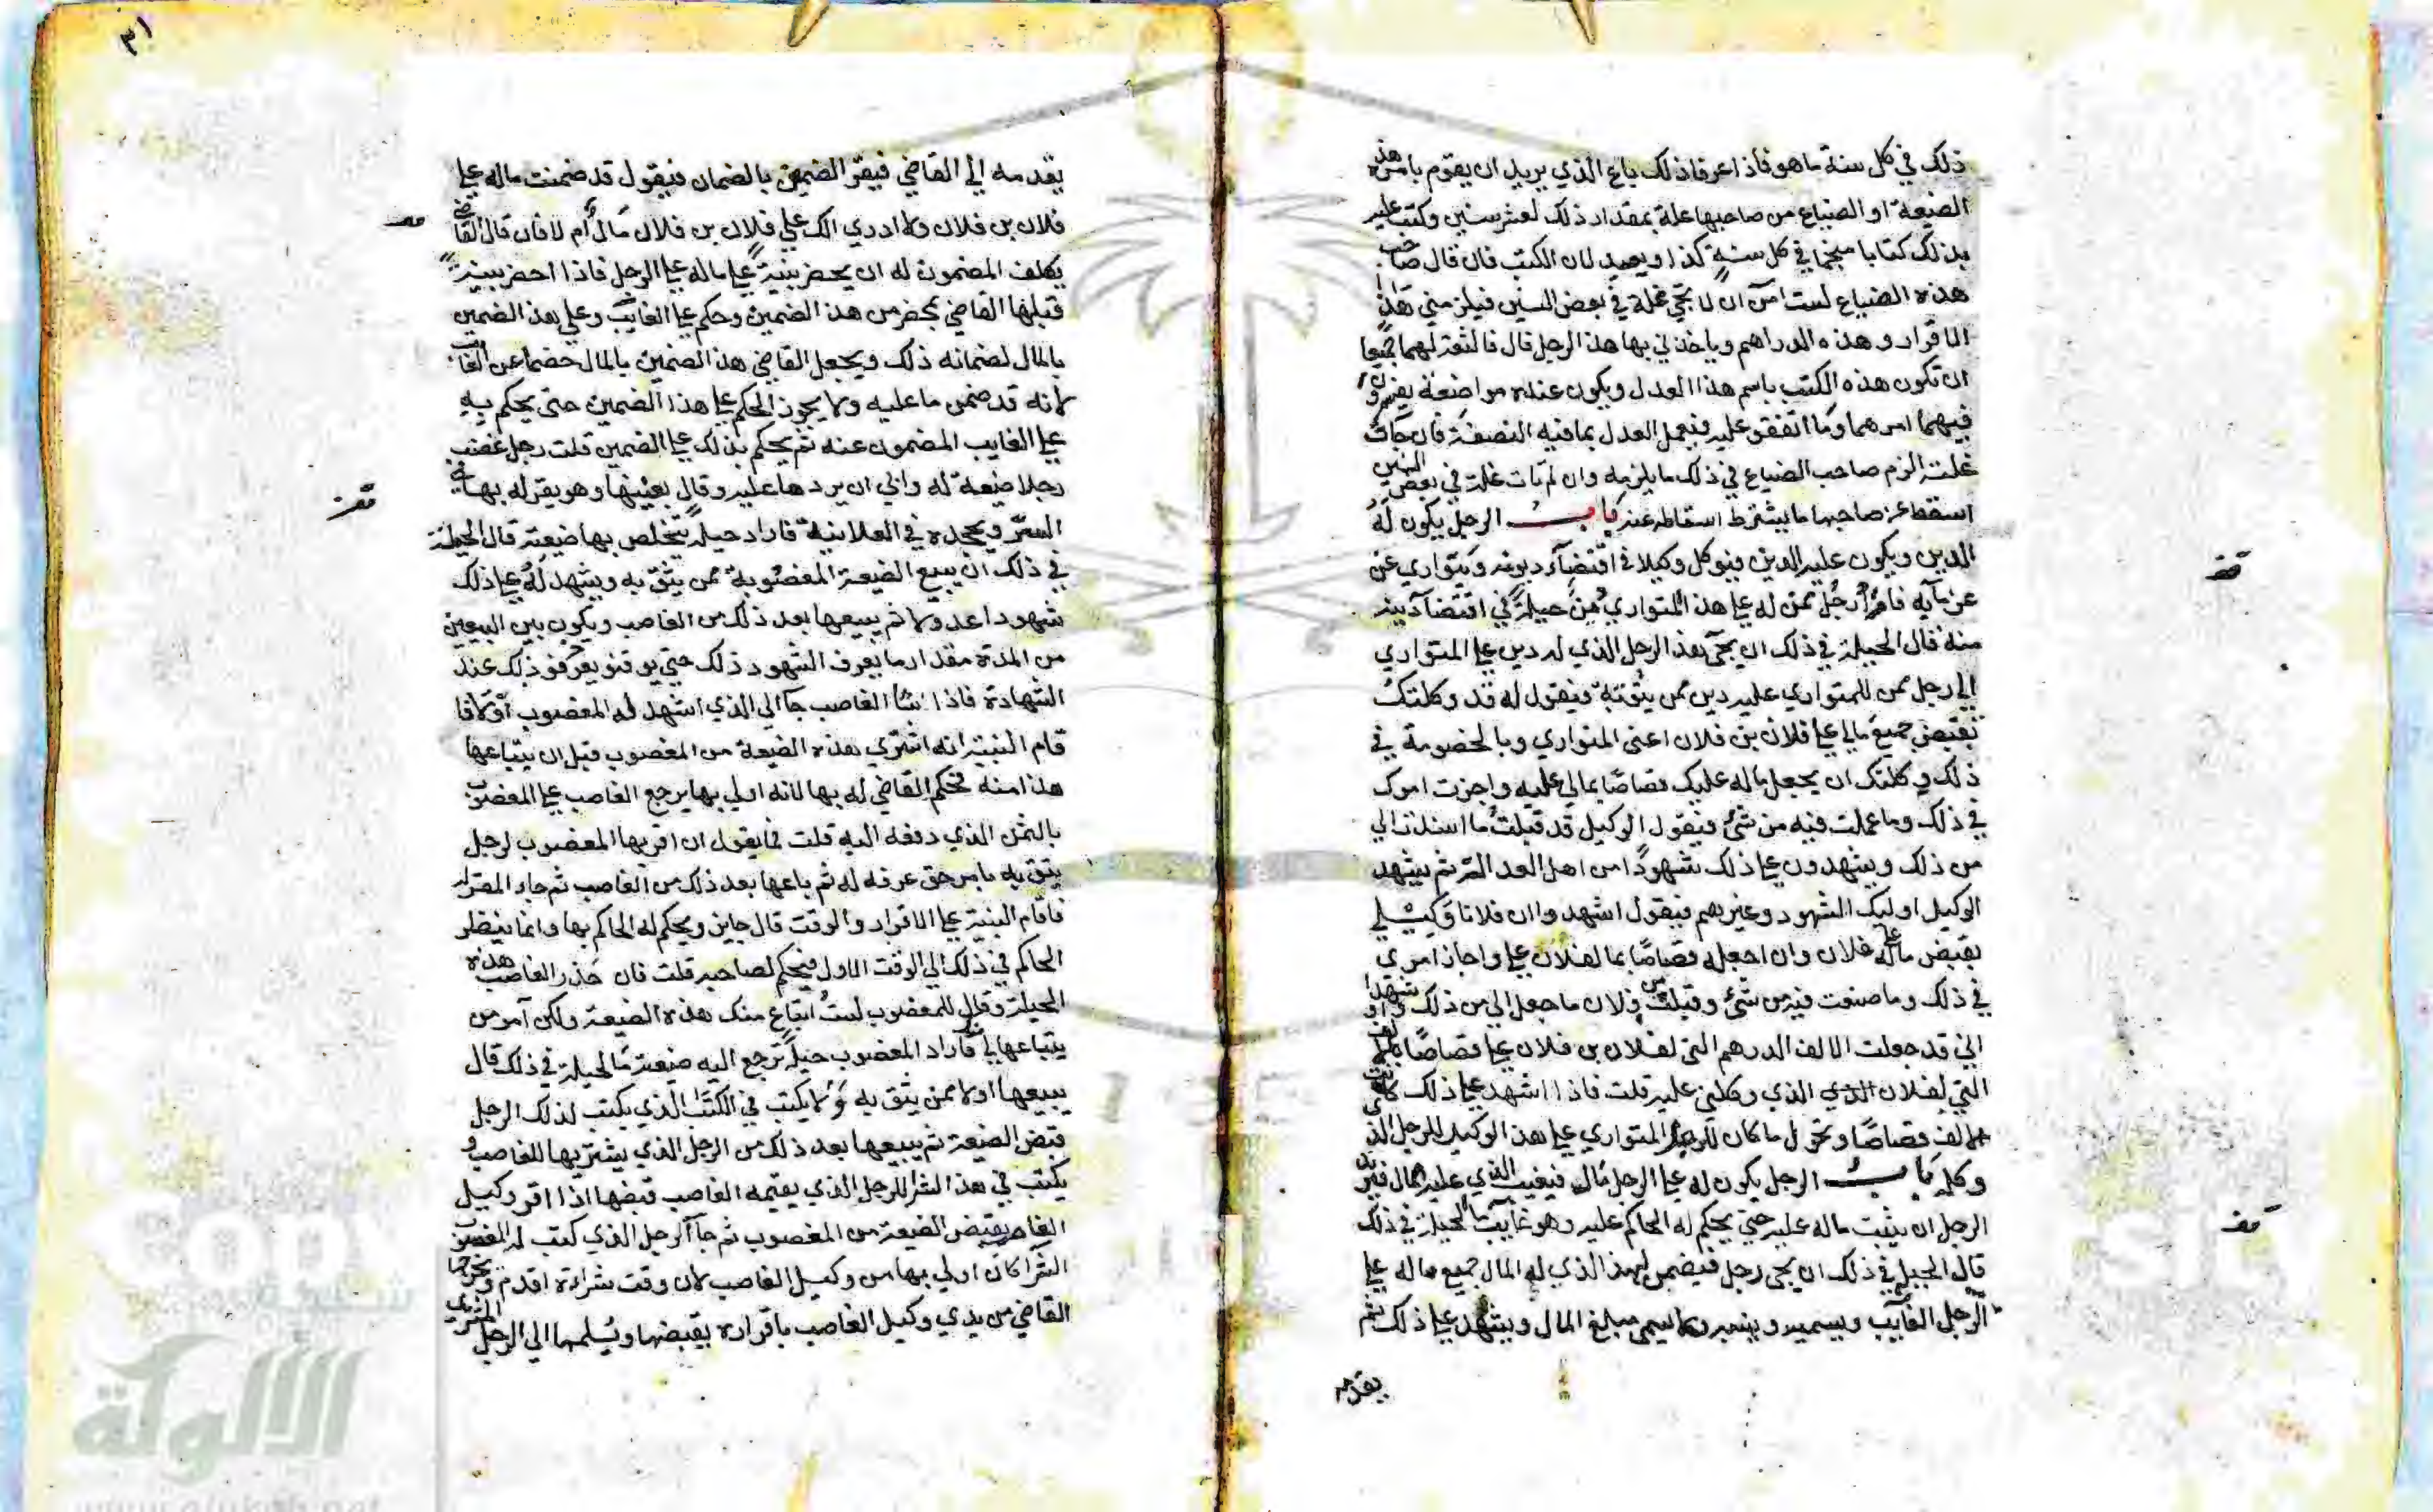 ذلك في كل سنة ما هو فاذا عرفا ذلك باع الذي يريد ان يقوم بامر هذه
الضيعة او الضياع من صاحبها غلة بمقدار ذلك لعشر سنين وكتب عليه
بذلك كتابا منجما في كل سنة كذا ويصير لان الكتب فان قال صاحب
هذه الضياع لست امن ان لا تجي غلة في بعض السنين فيلزمني هذا
الاقرار وهذه الدراهم وياخذني بها هذا الرجل قال فالثقة لهما جميعا
ان تكون هذه الكتب باسم هذا العدل ويكون عنده مواضعة يقرون
فيهما امرهما وما اتفقو عليه فيعمل العدل بما فيه النصفة فان جات
غلته الزم صاحب الضياع في ذلك ما يلزمه وان لم تات غلة في بعض السنين
اسقط عن صاحبها ما يشترط اسقاطه عنه باب الرجل يكون له
الدين ويكون عليه الدين فيوكل وكيلا في اقتضاء ديونه ويتواري عن
غرمايه فامر رجل ممن له على هذا المتواري من حيلة في اقتضا دينه
منه قال الحيلة في ذلك ان يجي هذا الرجل الذي له دين على المتواري
الى رجل ممن للمتواري عليه دين ممن يثق به فيقول له قد وكلتك
تقبض جميع مالي على فلان بن فلان اعنى المتواري وبالخصومة في
ذلك ووكلتك ان يجعل ماله عليك قصاصا بمالي عليه واجزت امرك
في ذلك وما عملت فيه من شئ فيقول الوكيل قد قبلت ما اسندت الي
من ذلك ويشهدون على ذلك شهودا من اهل العدالة ثم يشهد
الوكيل اوليك الشهود وغيرهم فيقول اشهدوا ان فلانا وكيلي
بقبض ماله على فلان وان اجعله قصاصا بما لفلان علي واجاز امري
في ذلك وما صنعت فيه من شئ وقبلت من فلان ما جعل الي من ذلك واشهدوا
اني قد جعلت الالف الدرهم التي لفلان بن فلان علي قصاصا بالالف
التي لفلان الذي الذي وكلني عليه قلت فاذا اشهد على ذلك كانت
الالف قصاصا وتحول ما كان للرجل المتواري على هذا الوكيل للرجل الذي
وكله باب الرجل يكون له على الرجل مال فيغيب الذي عليه المال فيريد
الرجل ان يثبت ماله عليه حتى يحكم له الحاكم عليه وهو غايب ما الحيلة في ذلك
قال الحيلة في ذلك ان يجي رجل فيضمن لهذا الذي له المال جميع ماله على
الرجل الغايب ويسميه وينسبه ولا يسمى مبلغ المال ويشهد على ذلك ثم
يقدمه
٣١
يقدمه الى القاضي فيقر الضمين بالضمان فيقول قد ضمنت ماله على
فلان بن فلان ولا ادري الك على فلان بن فلان مال ام لا فان قال القاضي
يكلف المضمون له ان يحضر بينة على ماله على الرجل فاذا احضر بينة
قبلها القاضي بمحضر من هذا الضمين وحكم على الغايب وعلى هذا الضمين
بالمال لضمانه ذلك ويجعل القاضي هذا الضمين بالمال خصما عن الغايب
لانه قد ضمن ما عليه ولا يجوز الحكم على هذا الضمين حتى يحكم به
على الغايب المضمون عنه ثم يحكم بذلك على الضمين قلت رجل غصب
رجلا ضيعة له وابي ان يردها عليه وقال بعنيها وهو يقر له بها في
السر ويجحده في العلانية فاراد حيلة يتخلص بها ضيعته قال الحيلة
في ذلك ان يبيع الضيعة المغصوبة ممن يثق به ويشهد له على ذلك
شهودا عدولا ثم يبيعها بعد ذلك من الغاصب ويكون بين البيعين
من المدة مقدار ما يعرف الشهود ذلك حتى يوقتو يعرفو ذلك عند
الشهادة فاذا اشا الغاصب جا الى الذي اشهد له المغصوب اولا فا
قام البينة انه اشتري هذه الضيعة من المغصوب قبل ان يبتاعها
هذا منه فحكم القاضي له بها لانه اولي بها يرجع الغاصب على المغصوب
بالثمن الذي دفعه اليه قلت فما يقول ان اقر بها المغصوب لرجل
يثق به بامر حق عرفه له ثم باعها بعد ذلك من الغاصب ثم جاء المقر له
فاقام البينة على الاقرار والوقت قال جايز ويحكم له الحاكم بها وانما ينظر
الحاكم في ذلك الى الوقت الاول فيحكم لصاحبه قلت فان حذر الغاصب هذه
الحيلة وقال للمغصوب لست ابتاع منك هذه الضيعة ولكن آمر من
يبتاعها لي فاراد المغصوب حيلة ترجع اليه ضيعته ما الحيلة في ذلك قال
يبيعها اولا ممن يثق به ولا يكتب في الكتاب الذي يكتب لذلك الرجل
قبض الضيعة ثم يبيعها بعد ذلك من الرجل الذي يشتريها للغاصب و
يكتب في هذا الشرا للرجل الذي يقيمه الغاصب قبضها اذا اقر وكيل
الغاصب بقبض الضيعة من المغصوب ثم جا الرجل الذي كتب له المغصوب
الشرا كان اولي بها من وكيل الغاصب لان وقت شراءه اقدم ويخرجها
القاضي من يدي وكيل الغاصب باقراره بقبضها ويسلمها الى الرجل المشتري
شبكة
الألوكة
www.alukah.net